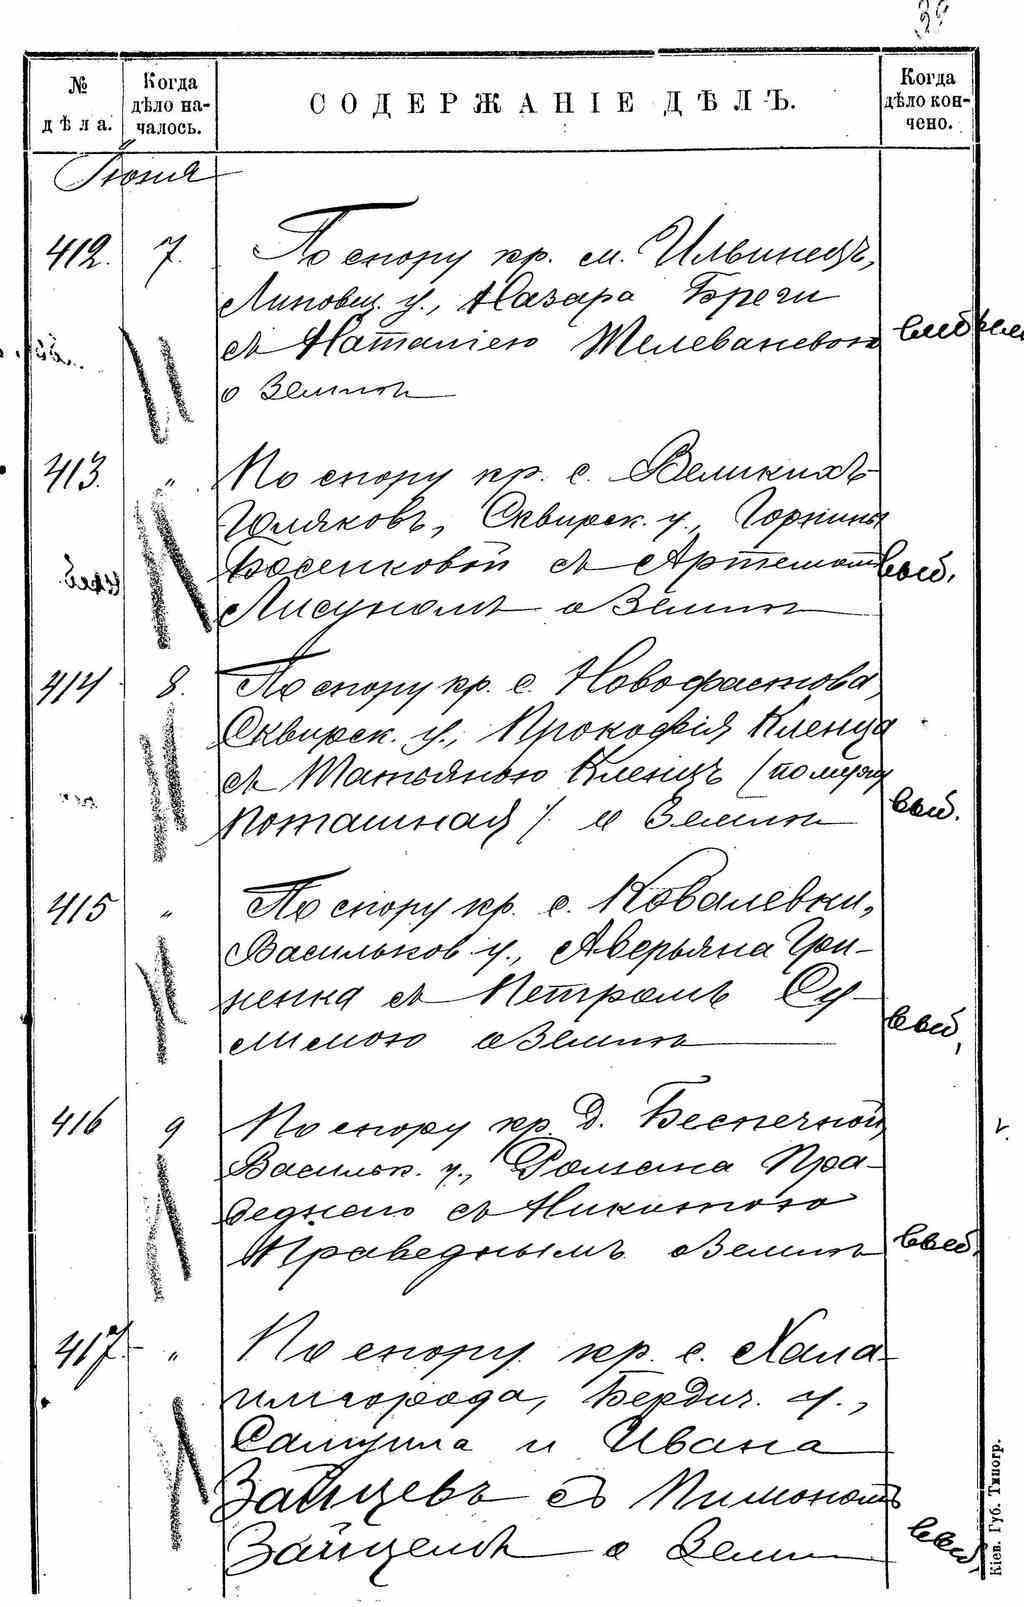 39
№ дѣла.
Когда дѣло началось.
СОДЕРЖАНІЕ ДѢЛЪ.
Когда дѣло кончено.
Іюня
412. 7. По спору кр. м. Ильинецъ,
Липовец. у., Назара Бреги
съ Наталіею Желевановою
о землѣ
413. „ По спору кр. с. Великихъ-
Гуляковъ, Сквирск. у.,
Босенковой съ Артемомъ
Лисуномъ о землѣ
выб.
414 8. По спору кр. с. Новофастова,
Сквирск. у., Прокофія Кленца
съ Татьяною Кленцъ (по мужу
Поташная) о землѣ
выб.
415 „ По спору кр. с. Ковалевки,
Васильков у., Аверьяна Гри-
ненка съ Петромъ Су-
лимою о землѣ
выб,
416 9 По спору кр. д. Беспечной,
Васильк. у., Романа Пра-
веднаго съ Никитою
Праведнымъ о землѣ
выб.
417. „ По спору кр. с. Хала-
имгорода, Бердич. у.,
Самуила и Ивана
Зайцевъ съ Пимономъ
Зайцемъ о земли
выб,
Кіев. Губ. Типогр.